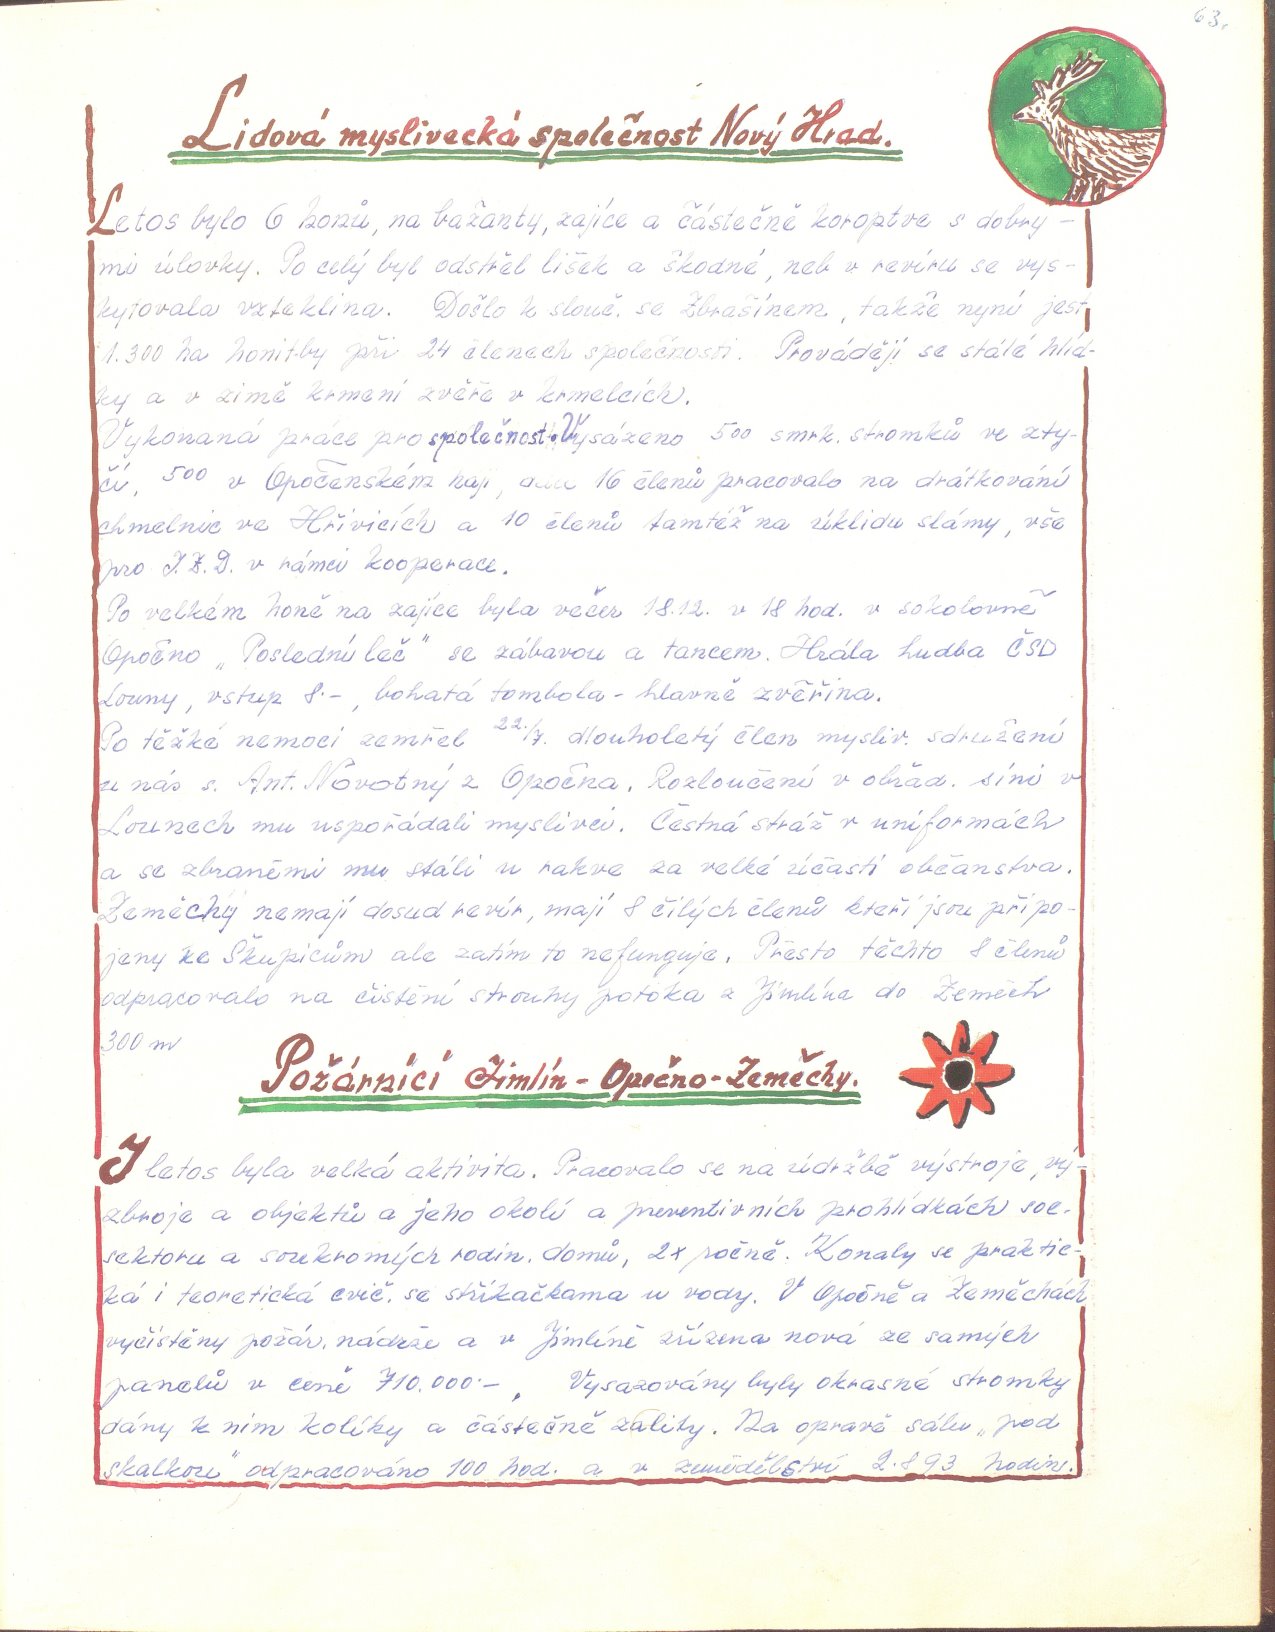 63.
Lidová myslivecká společnost Nový Hrad.
Letos bylo 6 honů, na bažanty, zajíce a částečně koroptve s dobrý-
mi úlovky. Po celý byl odstřel lišek a škodné, neb v revíru se vys-
kytovala vzteklina. Došlo k slouč. se Zbrašínem, takže nyní jest
1.300 ha honitby při 24 členech společnosti. Provádějí se stálé hlíd-
ky a v zimě krmení zvěře v krmelcích.
Vykonaná práce pro společnost. Vysázeno 500 smrk. stromků ve zty-
čí, 500 v Opočenském háji, 16 členů pracovalo na drátkování
chmelnic ve Hřivicích a 10 členů tamtéž na úklidu slámy, vše
pro J.Z.D. v rámci kooperace.
Po velkém honě na zajíce byla večer 18.12. v 18 hod. v sokolovně
Opočno „Poslední leč" se zábavou a tancem. Hrála hudba ČSD
Louny, vstup 8.-, bohatá tombola - hlavně zvěřina.
Po těžké nemoci zemřel 22./7. dlouholetý člen mysliv. sdružení
u nás s. Ant. Novotný z Opočna. Rozloučení v obřad. síni v
Lounech mu uspořádali myslivci. Čestná stráž v uniformách
a se zbraněmi mu stáli u rakve za velké účasti občanstva.
Zeměchy nemají dosud revír, mají 8 čilých členů kteří jsou připo-
jeny ke Škupicům ale zatím to nefunguje. Přesto těchto 8 členů
odpracovalo na čistění strouhy potoka z Jimlína do Zeměch
300 m
Požárníci Jimlín - Opočno - Zeměchy.
I letos byla velká aktivita. Pracovalo se na údržbě výstroje, vý-
zbroje a objektů a jeho okolí a preventivních prohlídkách soc.
sektoru a soukromých rodin. domů, 2x ročně. Konaly se praktic-
ká i teoretická cvič. se stříkačkama u vody. V Opočně a Zeměchách
vyčistěny požár. nádrže a v Jimlíně zřízena nová ze samých
panelů v ceně 710.000.-, Vysazovány byly okrasné stromky
dány k nim kolíky a částečně zality. Na opravě sálu „pod
skalkou" odpracováno 100 hod. a v zemědělství 2.893 hodin.